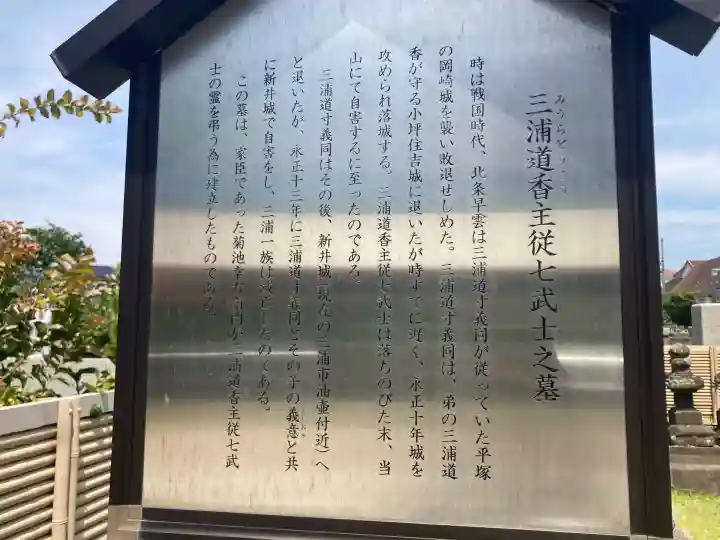 三浦道香主従七武士之墓
みうらどう
時は戦国時代、北条早雲は三浦道寸義同が従っていた平塚
の岡崎城を襲い敗退せしめた。三浦道寸義同は、弟の三浦道
香が守る小坪住吉城に退いたが時すでに遅く、永正十年城を
攻められ落城する。三浦道香主従七武士は落ちのびた末、当
山にて自害するに至ったのである。
三浦道寸義同はその後、新井城(現在の三浦市油壷付近)へ
と退いたが、永正十三年に三浦道寸義同とその子の義意と共
に新井城で自害をし、三浦一族は滅亡したのである。
この墓は、家臣であった菊池幸右衛門が三浦道香主従七武
士の霊を弔う為に建立したものである。